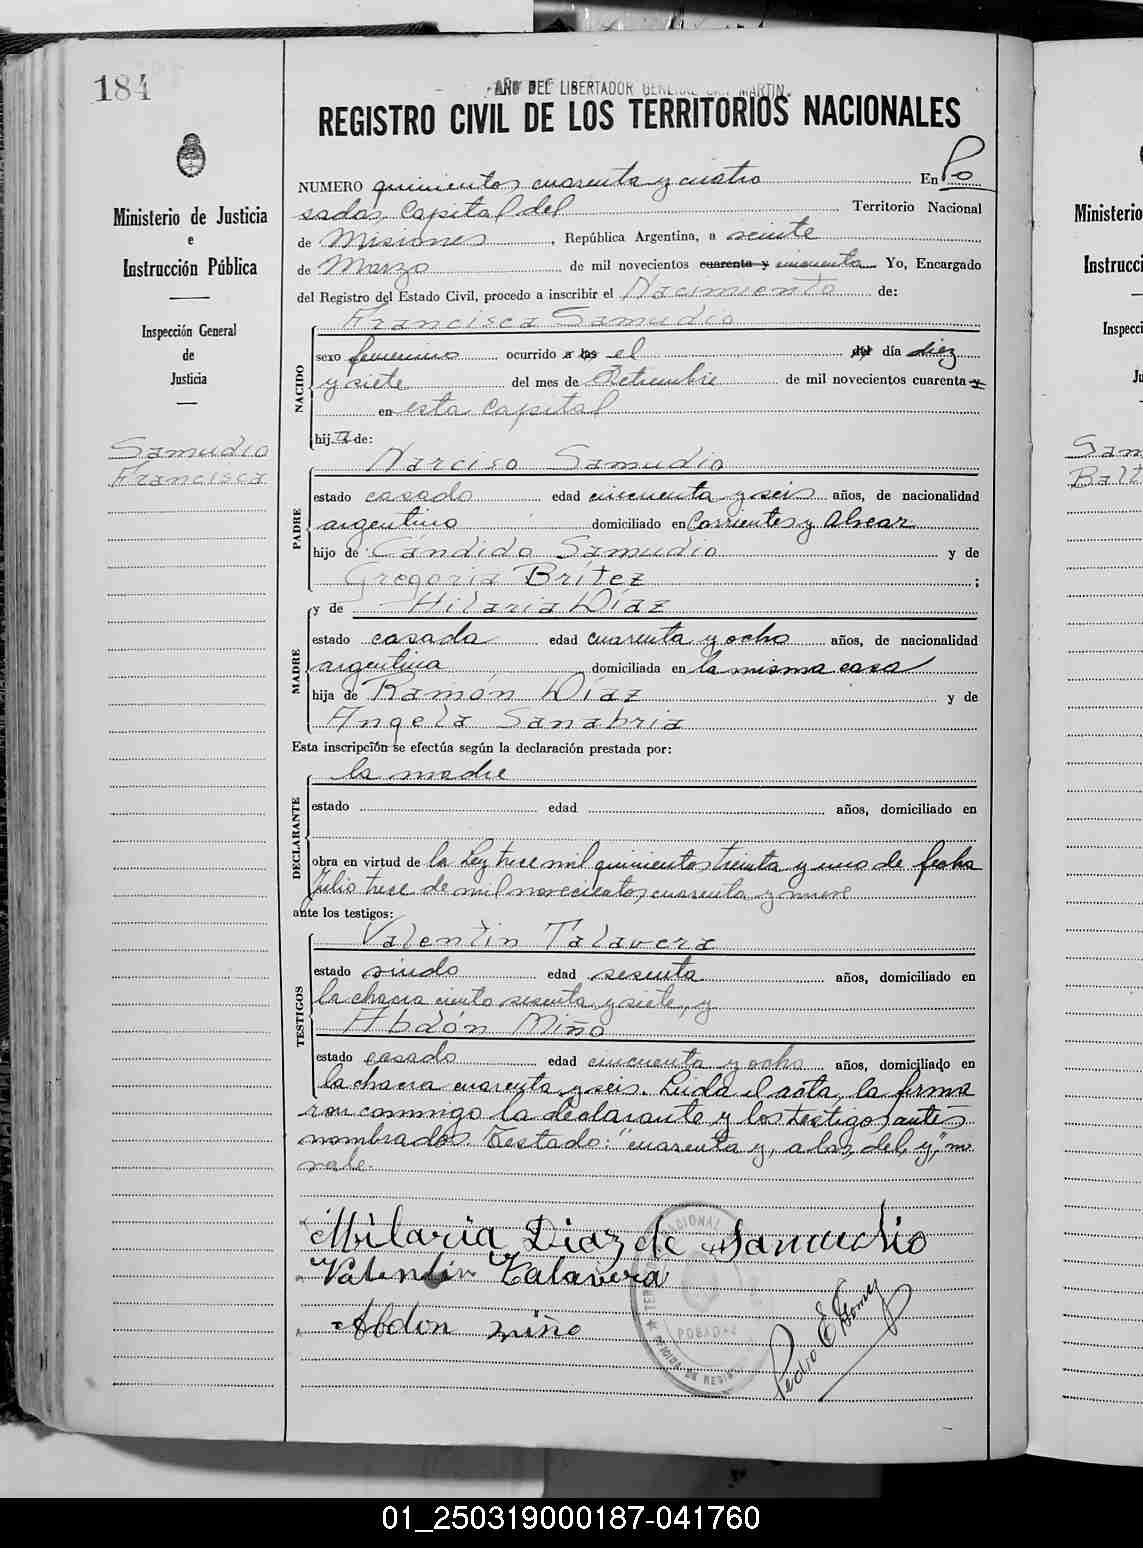 184
AÑO DEL LIBERTADOR GENERAL SAN MARTIN.
REGISTRO CIVIL DE LOS TERRITORIOS NACIONALES
Ministerio de Justicia
e
Instrucción Pública
Inspección General
de
Justicia
Samudio
Francisca
NUMERO quinientos cuarenta y cuatro En Po
sadas Capital del Territorio Nacional
de Misiones, República Argentina, a veinte
de Marzo de mil novecientos cuarenta y cincuenta Yo, Encargado
del Registro del Estado Civil, procedo a inscribir el Nacimiento de:
Francisca Samudio
NACIDO
sexo femenino ocurrido a las el del día diez
y siete del mes de Setiembre de mil novecientos cuarenta y
en esta Capital
hija de:
Narciso Samudio
PADRE
estado casado edad cincuenta y seis años, de nacionalidad
argentino domiciliado en Corrientes y Alvear
hijo de Cándido Samudio y de
Gregoria Brítez ;
y de Hilaria Díaz
MADRE
estado casada edad cuarenta y ocho años, de nacionalidad
argentina domiciliada en la misma casa
hija de Ramón Díaz y de
Angela Sanabria
Esta inscripción se efectúa según la declaración prestada por:
la madre
DECLARANTE
estado edad años, domiciliado en
obra en virtud de la Ley trece mil quinientos treinta y uno de fecha
Julio trece de mil novecientos cuarenta y nueve
ante los testigos:
Valentin Talavera
TESTIGOS
estado viudo edad sesenta años, domiciliado en
la chacra ciento sesenta y siete, y
Abdón Miño
estado casado edad cincuenta y ocho años, domiciliado en
la chacra cuarenta y seis. Leida el acta, la firma
ron conmigo la declarante y los testigos antes
nombrados. Testado: "cuarenta y, a las, del, y," no
vale.
Hilaria Diaz de Samudio
Valentin Talavera
Abdon miño
Pedro E Gomez
POSADAS
Ministerio
Instrucci
Inspecci
Ju
Sam
Balt
01_250319000187-041760